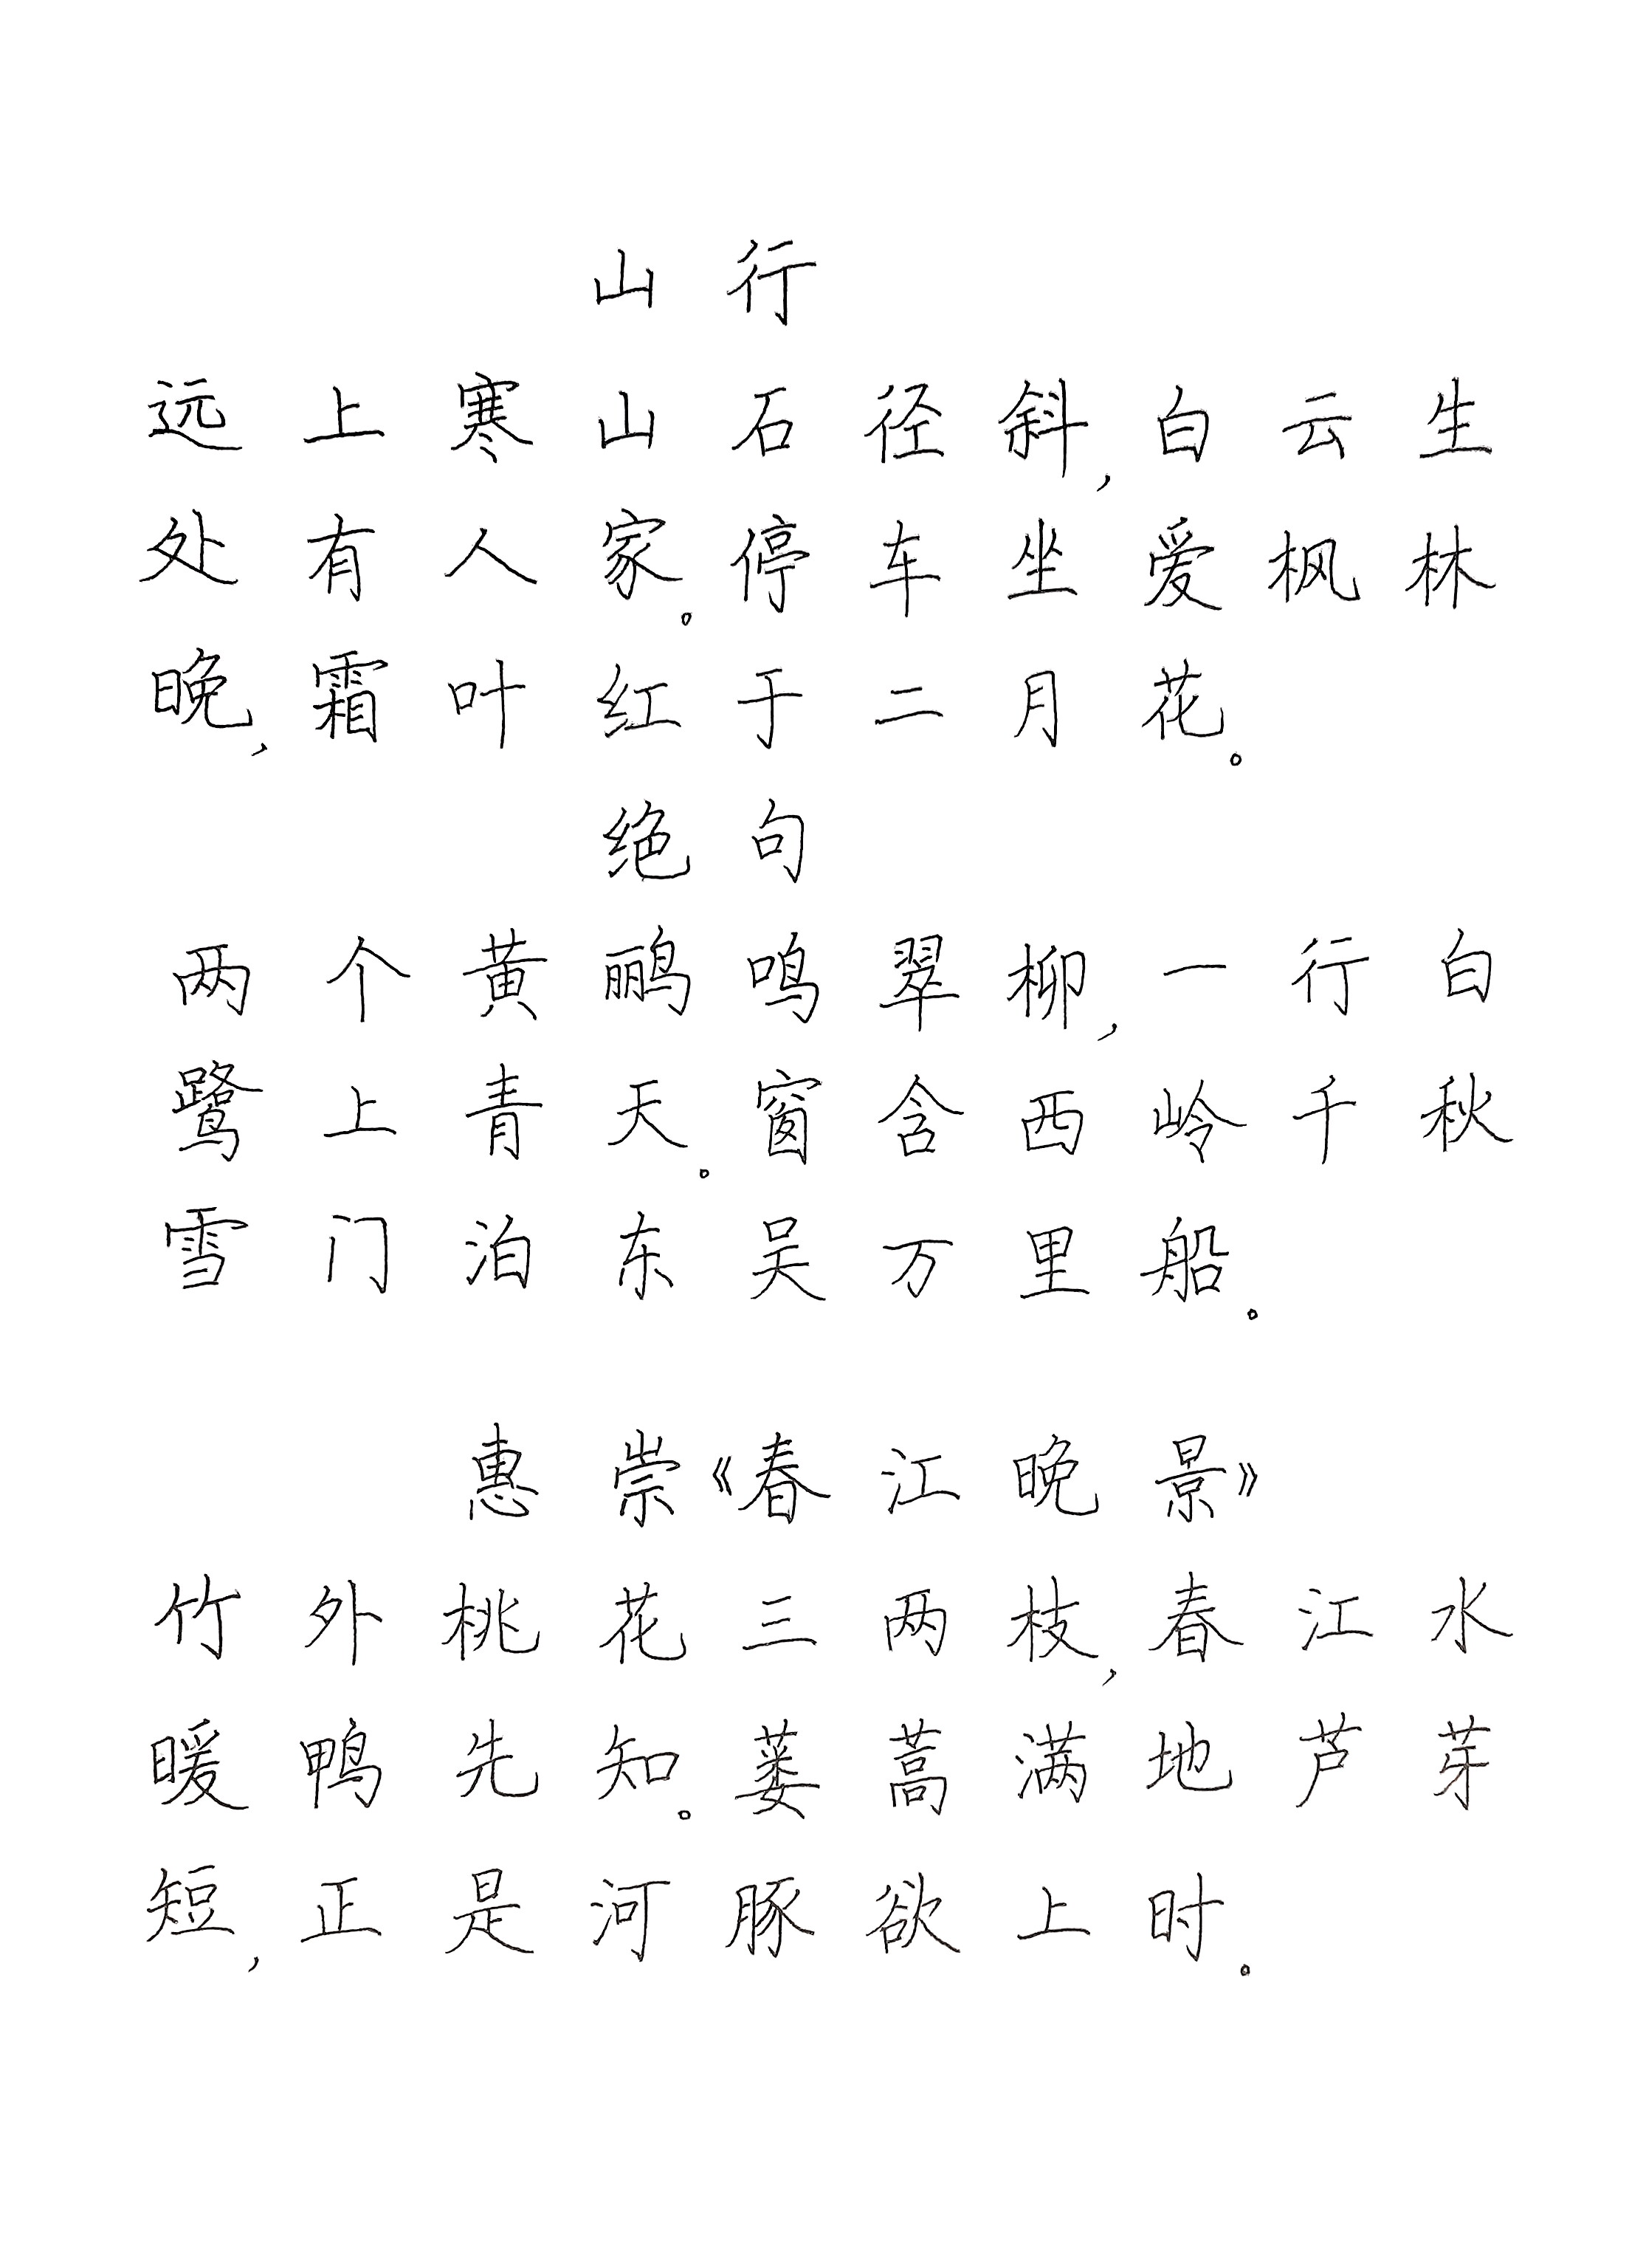 山行
远上寒山石径斜,白云生
处有人家。停车坐爱枫林
晚,霜叶红于二月花。
绝句
两个黄鹂鸣翠柳,一行白
鹭上青天。窗含西岭千秋
雪门泊东吴万里船。
惠崇《春江晚景》
竹外桃花三两枝,春江水
暖鸭先知。蒌蒿满地芦芽
短,正是河豚欲上时。